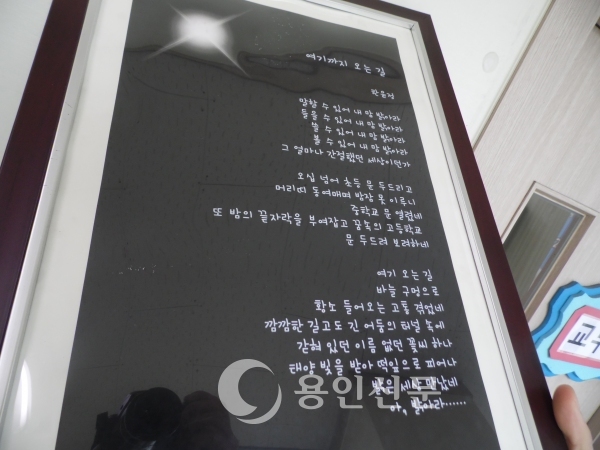 여기까지 오는 길
박윤정
말할 수 있어 내 맘 밝아라
들을 수 있어 내 맘 밝아라
쓸 수 있어 내 맘 밝아라
볼 수 있어 내 맘 밝아라
그 얼마나 간절했던 세상이던가
오십 넘어 초등 문 두드리고
머리띠 동여매며 밤잠 못 이루니
중학교 문 열렸네
또 밤의 끝자락을 부여잡고 꿈속의 고등학교
문 두드려 보려하네
여기 오는 길
바늘 구멍으로
황소 들어오는 고통 겪었네
깜깜한 길고도 긴 어둠의 터널 속에
갇혀 있던 이름 없던 꽃씨 하나
태양 빛을 받아 떡잎으로 피어나
밝은 세상 만났네
아, 밝아라……
용인신문